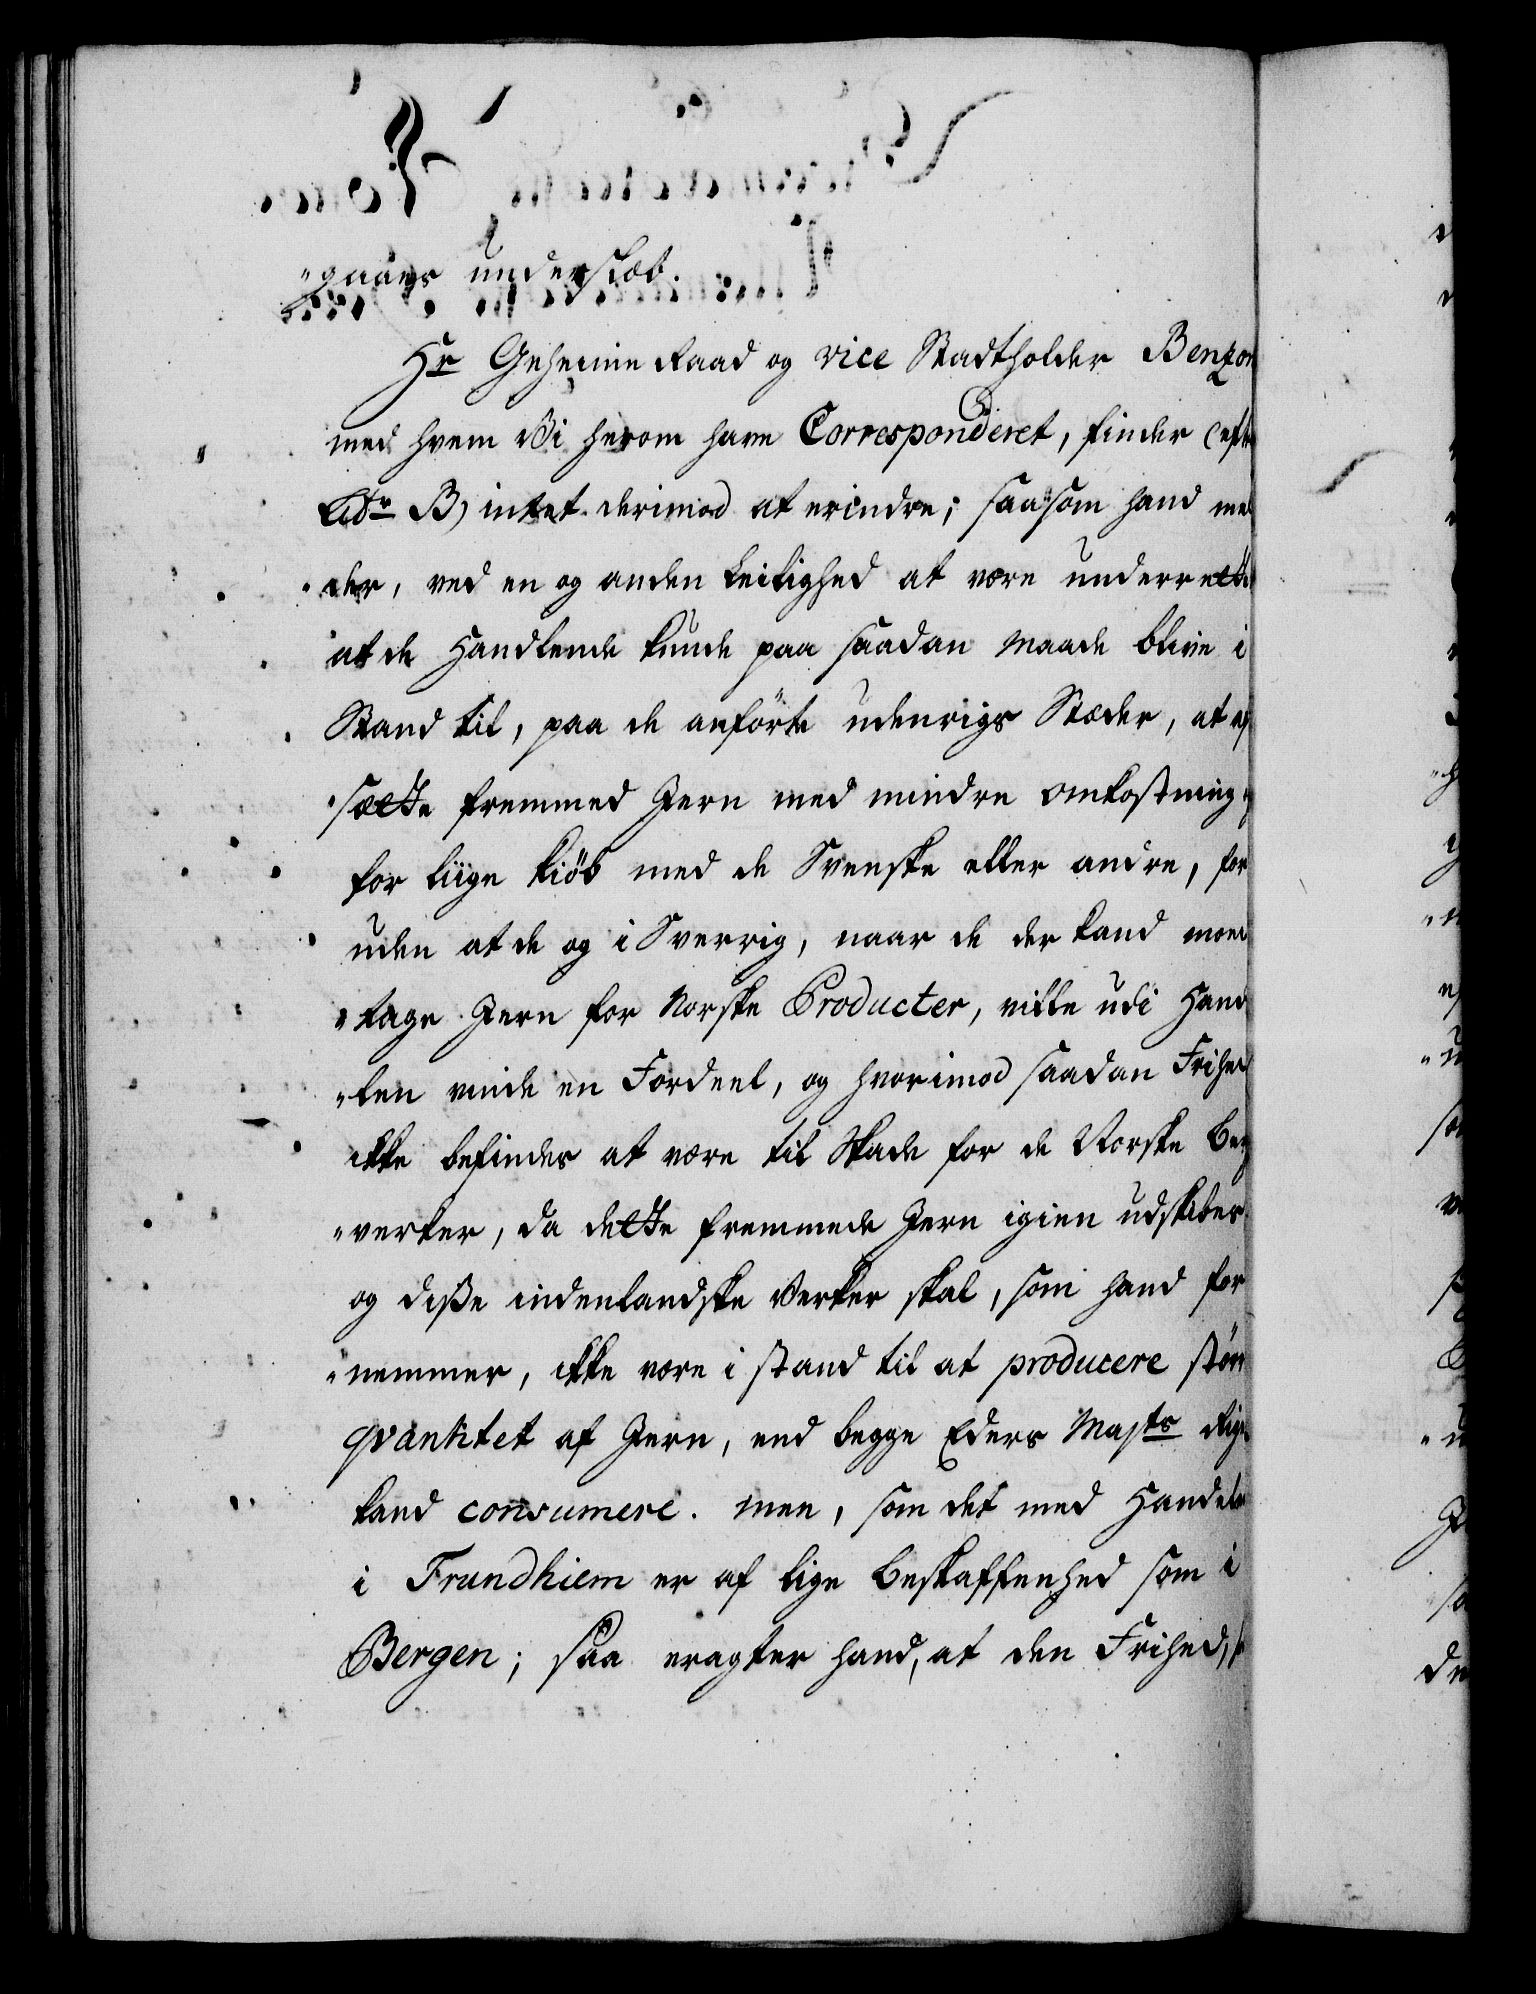 "gaaes underslæb.
Hr Geheime Raad og vice Stadtholder Benzon
med hvem Vi herom have Corresponderet, finder (eft
Litr B) intet derimod at erindre; saasom hand me
der, ved en og anden Leilighed at være underrette
at de Handlende kunde paa saadan Maade blive i
Stand til, paa de anførte udenrigs Stæder, at af
sætte fremmed Jern med mindre omkostning
for liige kiöb med de Svenske eller andre, for
uden at de og i Sverrig, naar de der kand mod
"tage Jern for Norske Producter, ville udi Hand
"len vinde en Fordeel, og hvorimod saadan Frihed
ikke befindes at være til Skade for de Norske Berg
"verker, da dette fremmede Jern igien udskibes
og diße indenlandske Verker skal, som hand for
"nemmer, ikke være i stand til at producere större
qvantitet af Jern, end begge Eders Majts Riger
kand consumere. men, som det med Handelen
i Trundhiem er af lige beskaffenhed som i
Bergen; saa eragter hand, at den Frihed,